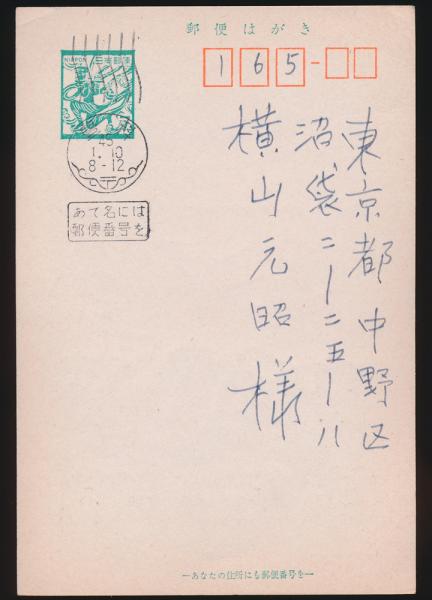 郵便はがき
165-
NIPPON 日本郵便
45
1.10
8-12
あて名には
郵便番号を
東京都中野区
沼袋二ー二五ー八
横山元昭様
―あなたの住所にも郵便番号を―